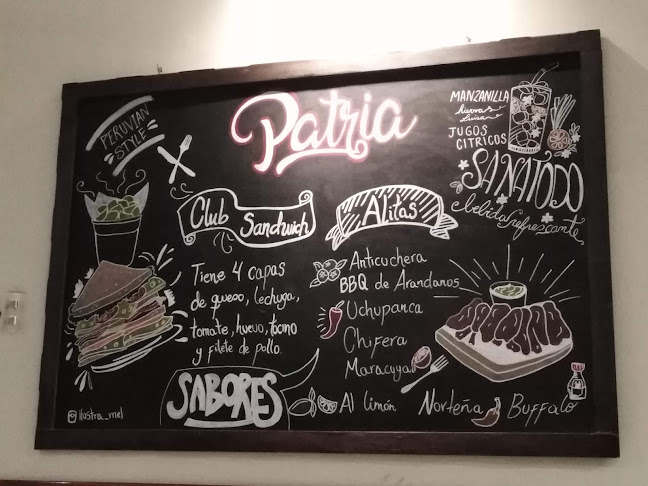 PERUVIAN
STYLE
Patria
MANZANILLA
hierva
Luisa
JUGOS
CITRICOS
SANATODO
bebida refrescante
Club Sandwich
Tiene 4 capas
de queso, lechuga,
tomate, huevo, tocino
y filete de pollo.
Alitas
Anticuchera
BBQ de Arandanos
Uchupanca
Chifera
Maracuya
SABORES
Al limón
Norteña
Buffalo
ilostra_mel